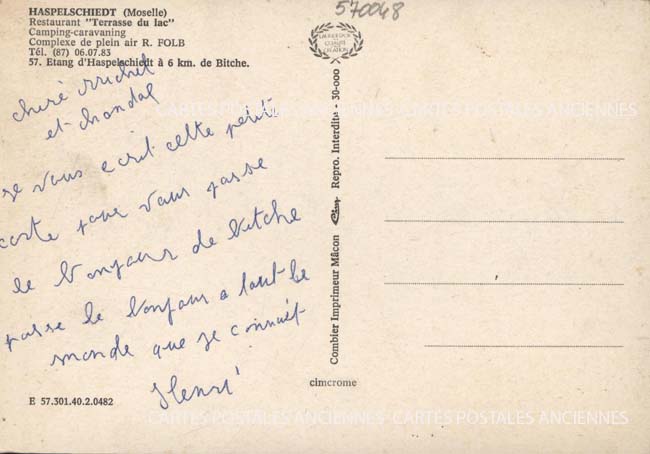 HASPELSCHIEDT (Moselle)
Restaurant "Terrasse du lac"
Camping-caravaning
Complexe de plein air R. FOLB
Tél. (87) 06.07.83
57. Etang d'Haspelschiedt à 6 km. de Bitche.
570048
cheré Michel
et chandal
je vous ecrit cette petite
carte pour vous passe
le bonjour de bitche
passe le bonjour a tout le
monde que je connait
Henri
E 57.301.40.2.0482
Combier Imprimeur Mâcon Cim Repro. Interdite - 30-000
cimcrome
CARTES POSTALES ANCIENNES CARTES POSTALES ANCIENNES
CARTES POSTALES ANCIENNES CARTES POSTALES ANCIENNES